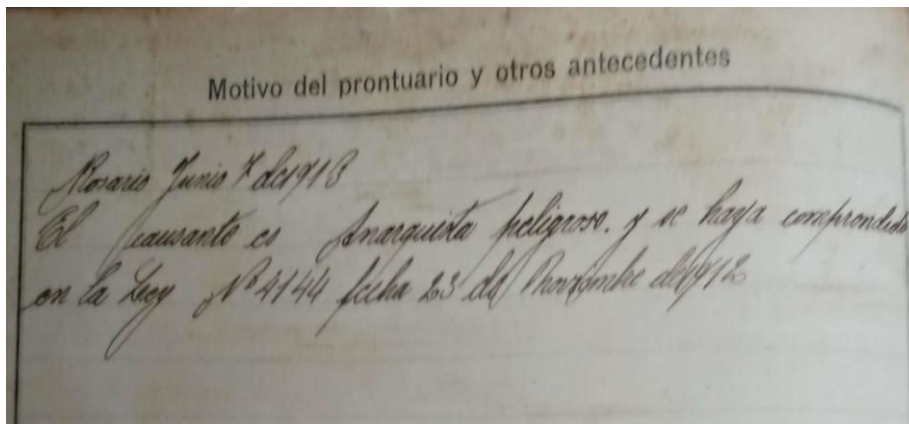 Motivo del prontuario y otros antecedentes
Rosario Junio 7 de 1913
El causante es Anarquista peligroso. y se haya comprendido
en la Ley Nº 4144 fecha 23 de Noviembre de 1912